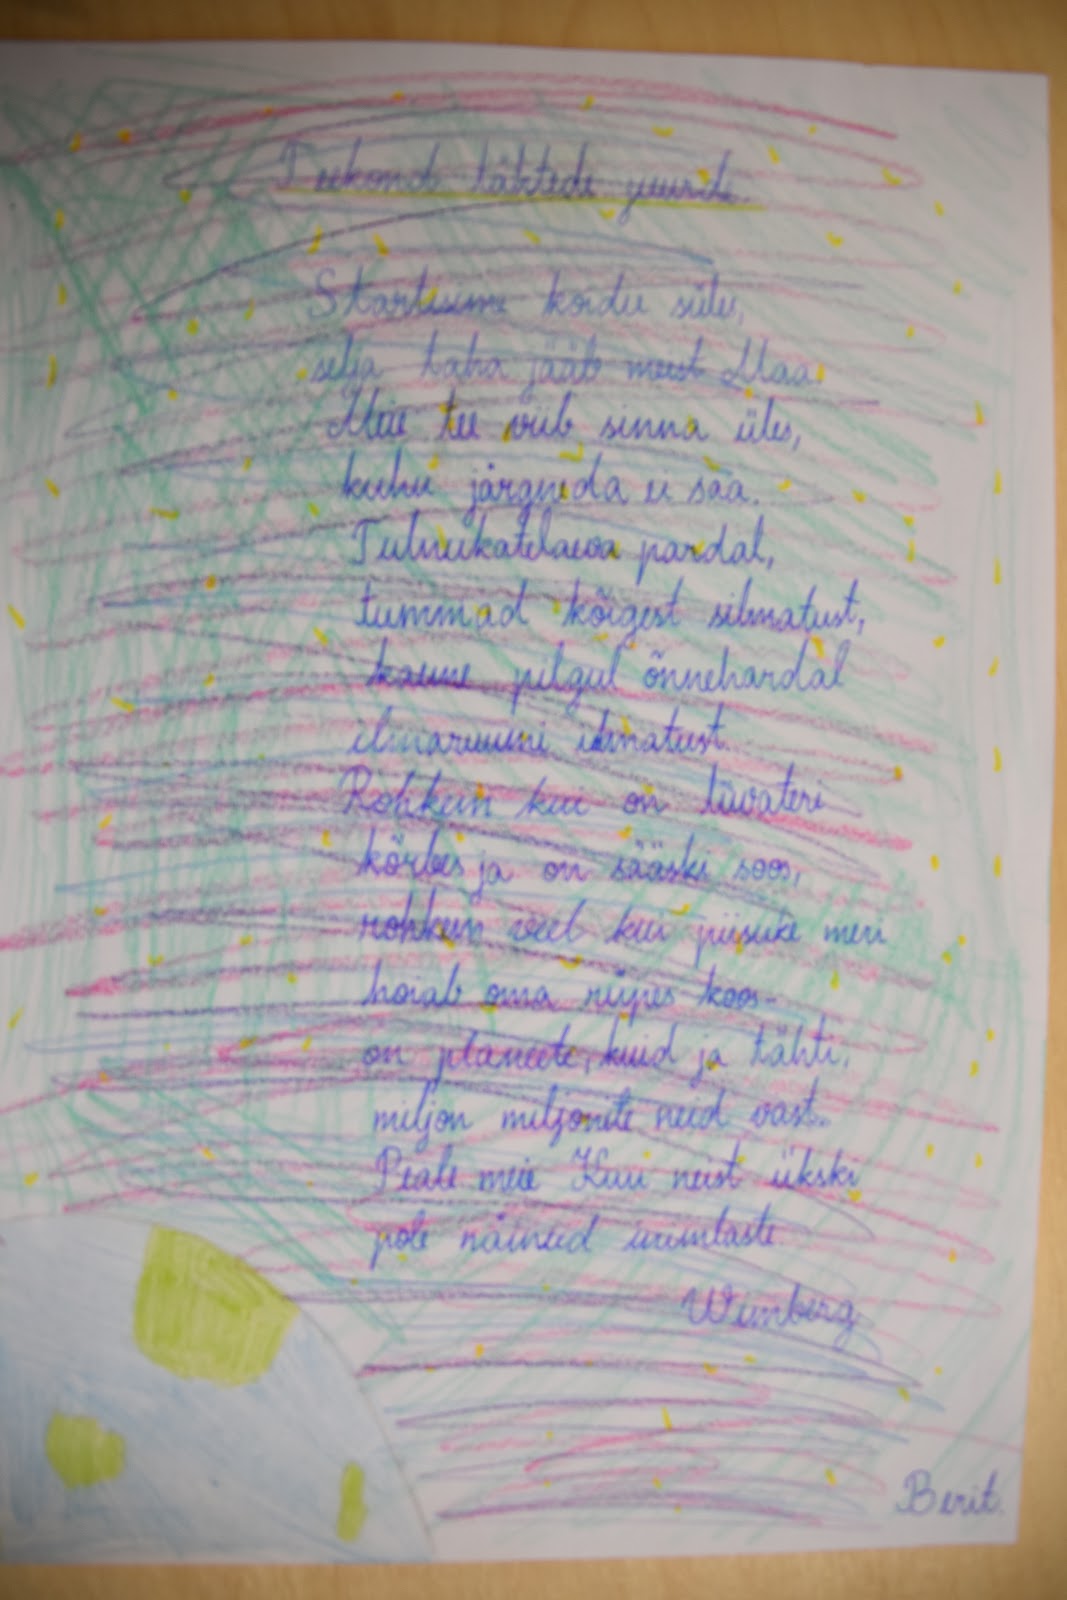 Teekond tähtede juurde.
Startisime koidu süles,
selja taha jääb meist Maa.
Meie tee viib sinna üles,
kuhu järgneda ei saa.
Tulnukatelaeva pardal,
tummad kõigest silmatust,
kaeme pilgul õnnehardal
ilmaruumi ilmatust.
Rohkem kui on liivateri
kõrbes ja on sääski soos,
rohkem veel kui piisuke meri
hoiab oma rüpes koos-
on planeete, kuid ja tähti,
miljon miljonite neid vast.
Peale meie Kuu neist ükski
pole näinud inimlaste
Wimberg
Berit.